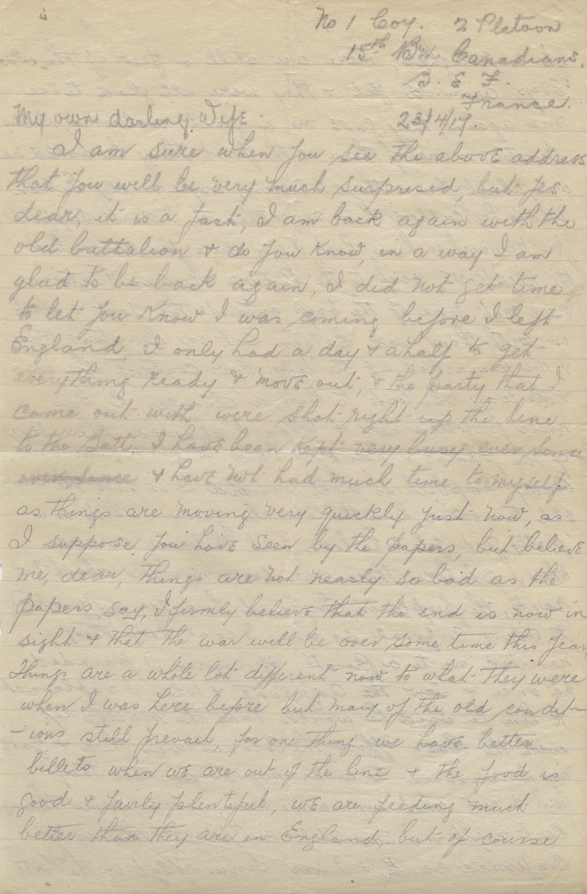 No 1 Coy. 2 Platoon
15th Bn. Canadians.
B. E. F.
France.
My own darling Wife. 23/4/17.
I am sure when you see the above address
that you will be very much surprised, but yes
dear, it is a fact, I am back again with the
old battalion & do you know, in a way I am
glad to be back again, I did not get time
to let you know I was coming before I left
England, I only had a day & a half to get
everything ready & move out, & the party that I
came out with were shot right up the line
to the Batt, I have been kept very busy ever since
ever since & have not had much time to myself
as things are moving very quickly just now, as
I suppose you have seen by the papers, but believe
me, dear, things are not nearly so bad as the
papers say, I firmly believe that the end is now in
sight & that the war will be over some time this year
Things are a whole lot different now to what they were
when I was here before but many of the old condit-
-ions still prevail, for one thing we have better
billets when we are out of the line & the food is
good & fairly plentiful, we are feeding much
better than they are in England, but of course